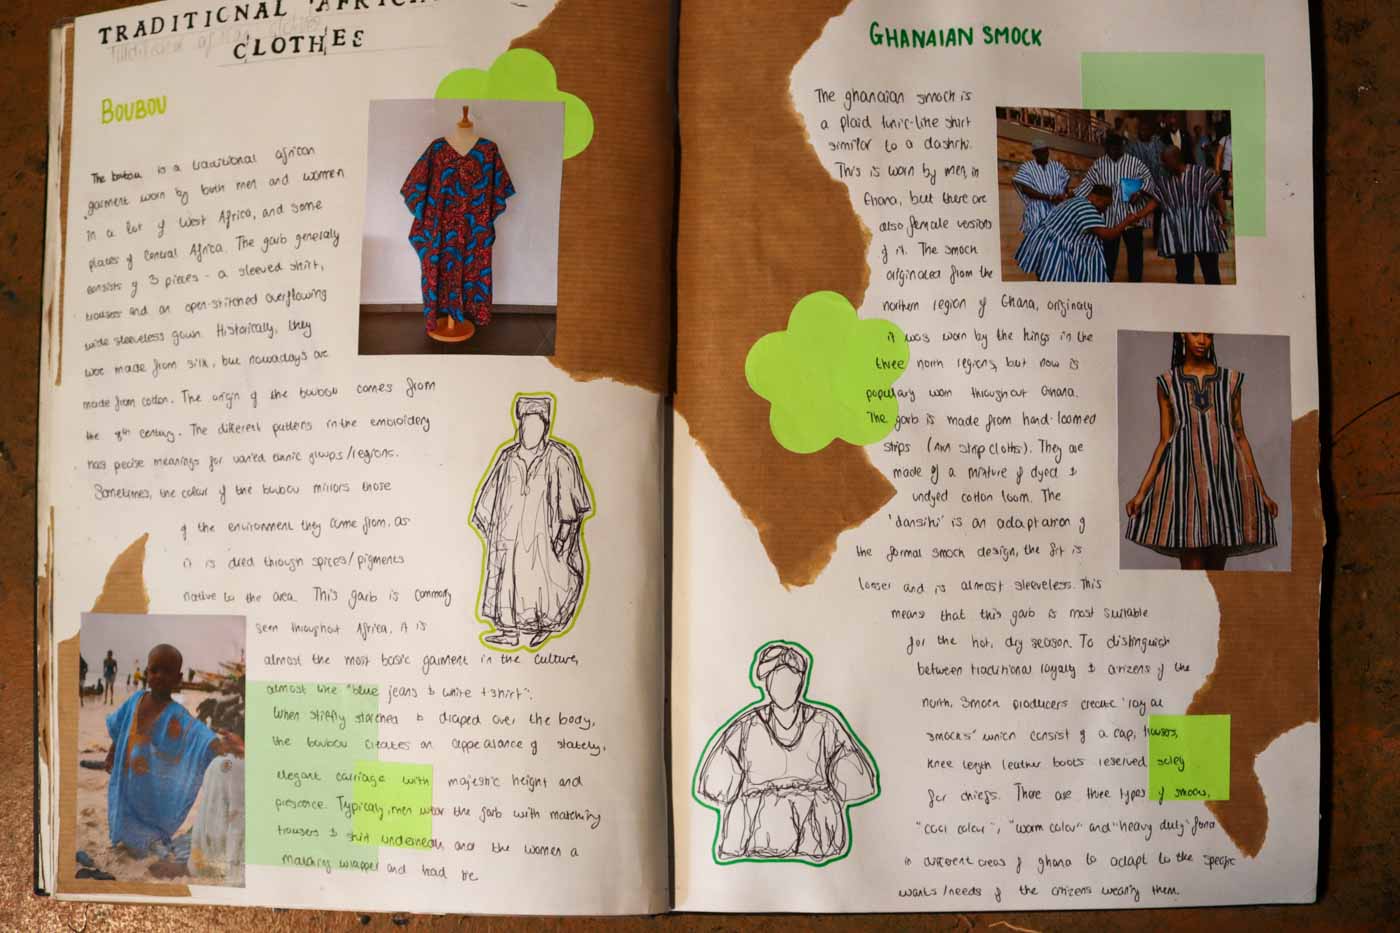 TRADITIONAL AFRICA
CLOTHES
BOUBOU
The boubou is a traditional african
garment worn by both men and women
in a lot of West Africa, and some
places of Central Africa. The garb generally
consists of 3 pieces - a sleeved shirt,
trousers and an open-stitched overflowing
wide sleeveless gown. Historically, they
were made from silk, but nowadays are
made from cotton. The origin of the boubou comes from
the 8th century. The different patterns in the embroidery
has precise meanings for varied ethnic groups/regions.
Sometimes, the colour of the boubou mirrors those
of the environment they came from, as
it is dyed through spices/pigments
native to the area. This garb is commonly
seen throughout Africa. it is
almost the most basic garment in the culture,
almost like "blue jeans & white t-shirt".
When stiffly starched & draped over the body,
the boubou creates an appearance of stately,
elegant carriage with majestic height and
prescence. Typically, men wear the garb with matching
trousers & shirt underneath and the women a
matching wrapper and head tie
GHANAIAN SMOCK
The ghanaian smock is
a plaid tunic-like shirt
similar to a dashiki.
This is worn by men, in
Ghana, but there are
also female versions
of it. The smock
originated from the
northern region of Ghana, originally
it was worn by the kings in the
three north regions, but now is
popularly worn throughout Ghana.
The garb is made from hand-loomed
strips (AKA strip cloths). They are
made of a mixture of dyed &
undyed cotton loom. The
'dansiki' is an adaptation of
the formal smock design, the fit is
looser and is almost sleeveless. This
means that this garb is most suitable
for the hot, dry season. To distinguish
between traditional royalty & citizens of the
north, smock producers create 'royal
smocks' which consist of a cap, trousers,
knee length leather boots reserved soley
for chiefs. There are three types of smocks,
"cool colour", "warm colour" and "heavy duty" found
in different areas of ghana to adapt to the specific
wants/needs of the citizens wearing them.